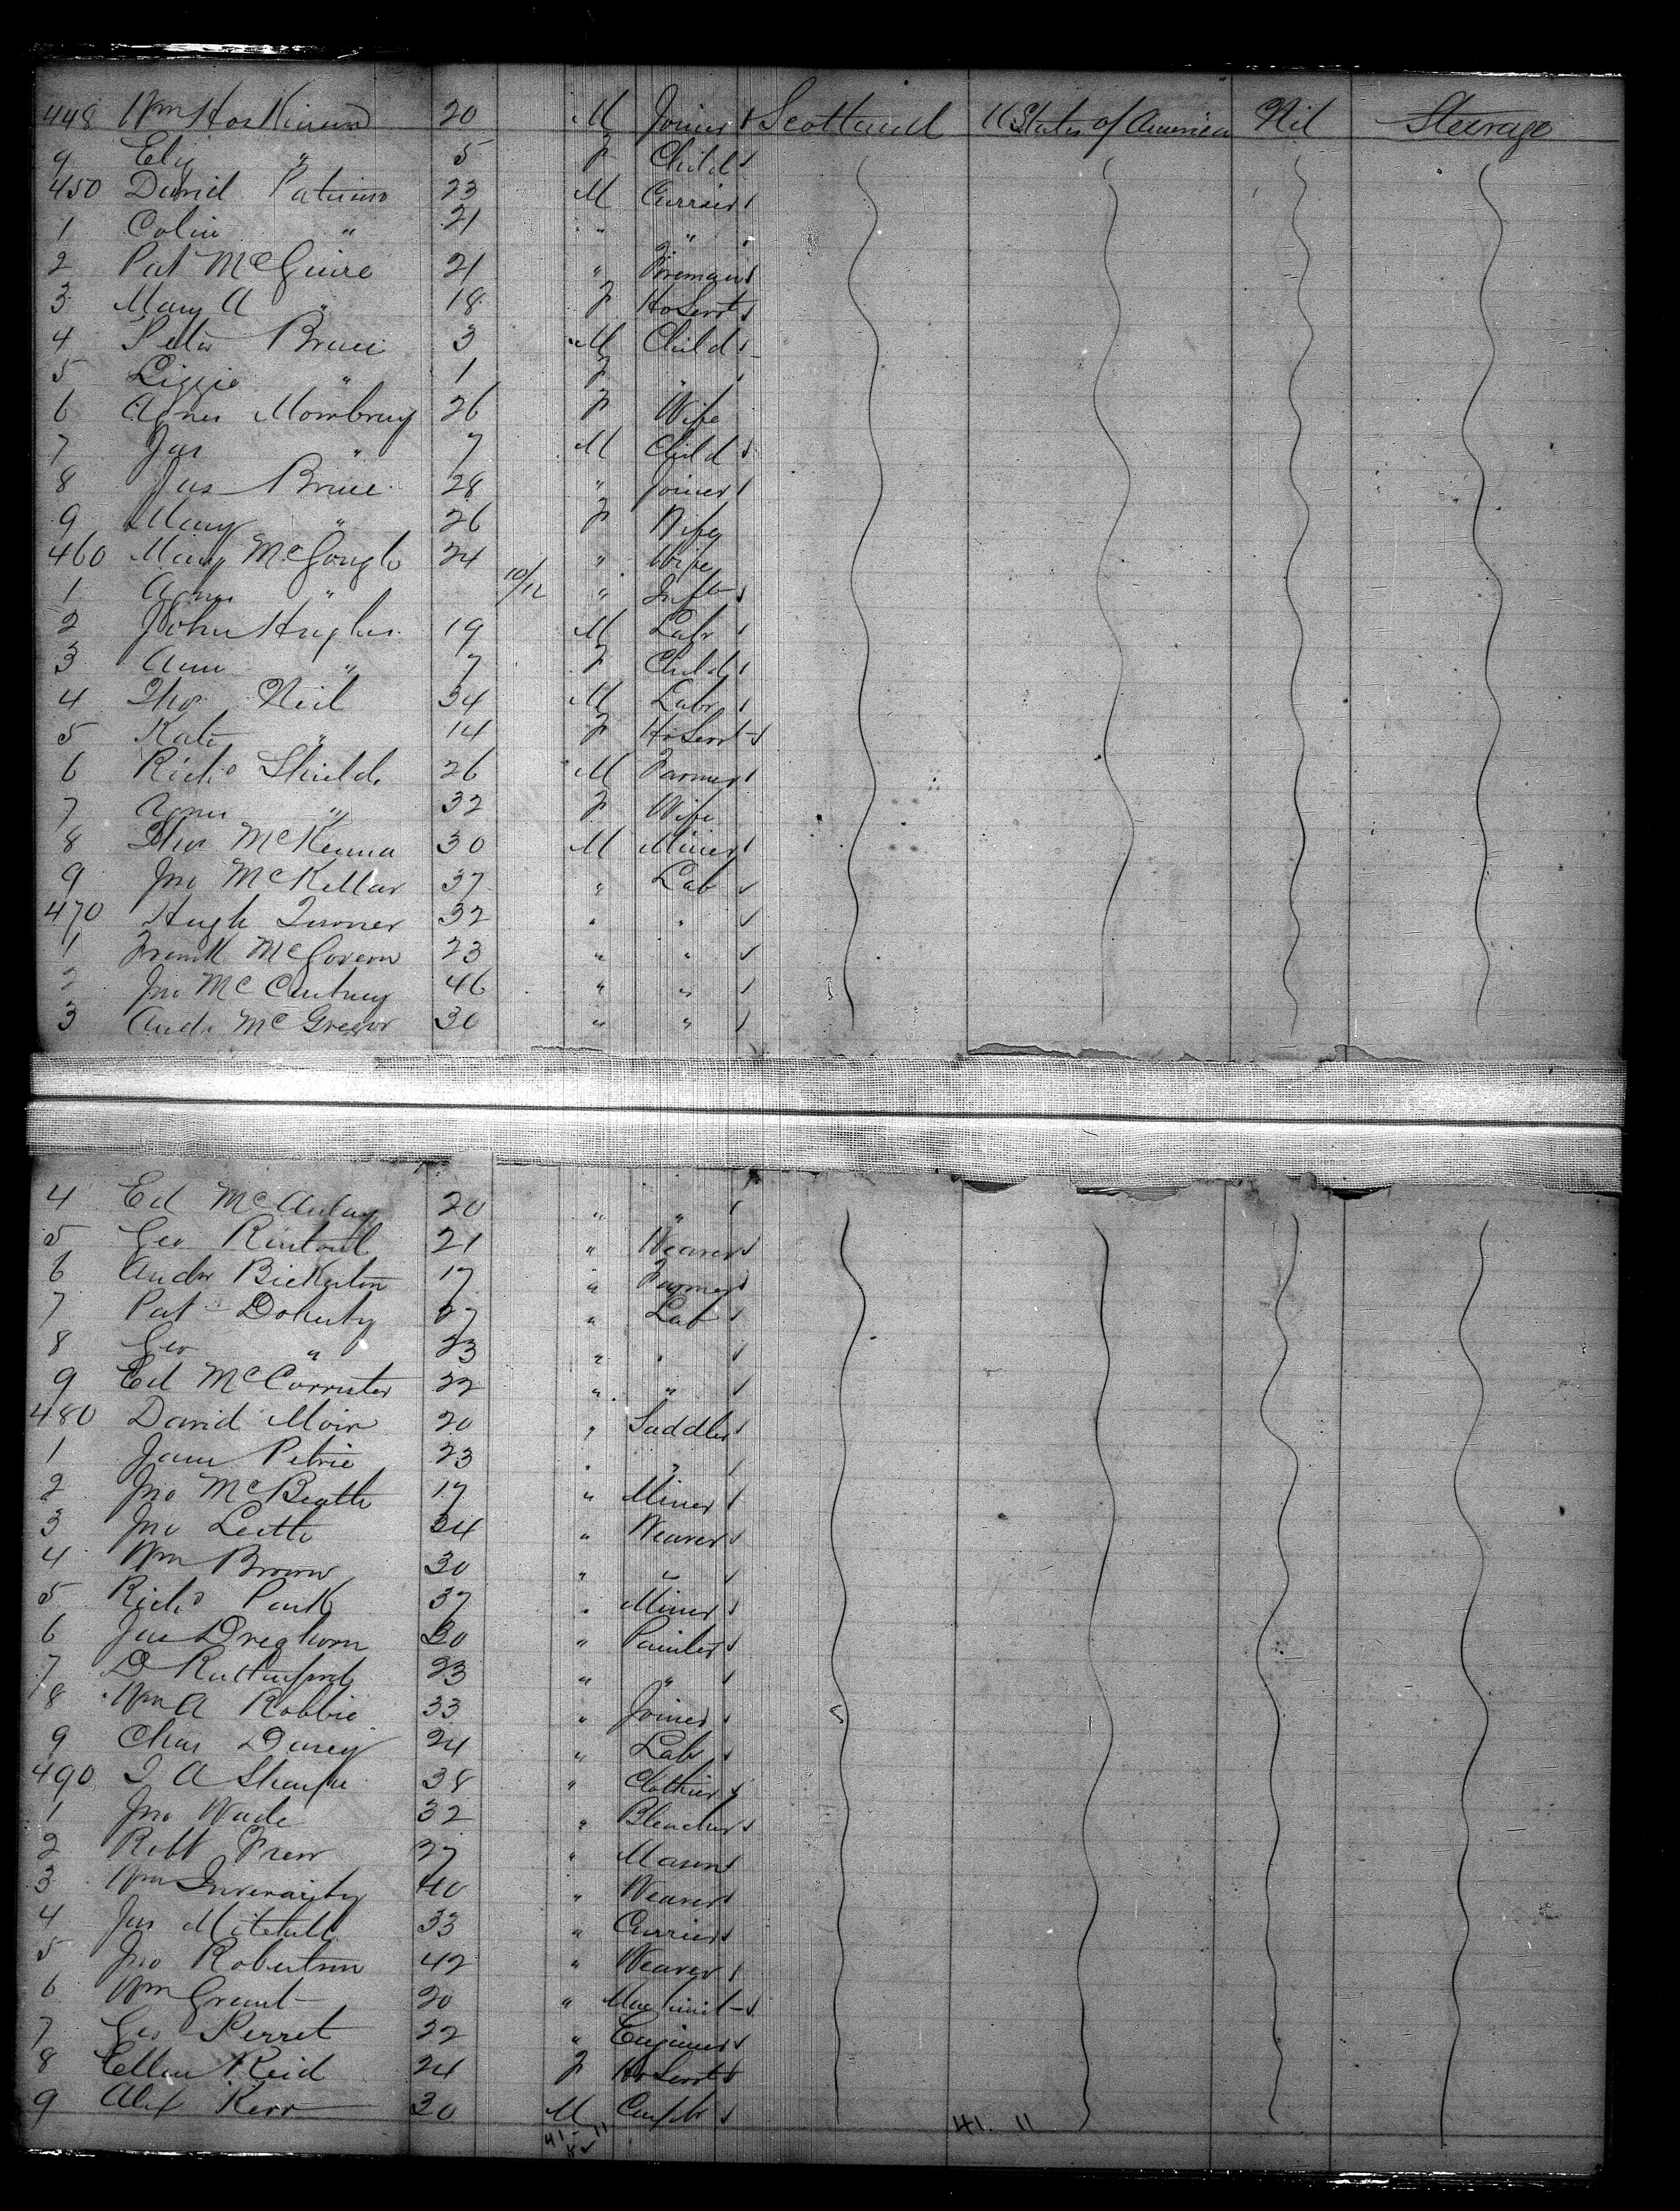 448 Wm Hoskinson 20 M Joiner Scotland U States of America Nil Steerage
9 Eliz " 5 F Child
450 David 23 M Currier
1 Colin " 21 " "
2 Pat McGuire 21 " Foreman
3 Mary A " 18 F Ho Servt
4 Peter Bruce 3 M Child
5 Lizzie " 1 F "
6 Agnes Mowbray 26 F Wife
7 Jas " 7 M Child
8 Jas Bruce 28 " Joiner
9 Mary " 26 F Wife
460 Mary McGongle 24 " Wife
1 Agnes " 10/12 " Inft
2 John Hughes 19 M Labr
3 Ann " 7 F Child
4 Thos Neil 34 M Labr
5 Kate " 14 F Ho Servt
6 Richd Shields 26 M Farmer
7 Agnes " 32 F Wife
8 Thos McKenna 30 M Miner
9 Jno McKellar 37 " Lab
470 Hugh Turner 32 " "
1 Frank McGovern 23 " "
2 Jno McCartney 46 " "
3 Andw McGregor 30 " "
4 Ed McAulay 20 " "
5 Geo Rintoul 21 " Weaver
6 Andw Bickerton 17 " Farmer
7 Pat Doherty 27 " Lab
8 Geo " 23 " "
9 Ed McCorrister 22 " "
480 David Moir 20 " Saddler
1 James Petrie 23 " "
2 Jno McBeath 17 " Miner
3 Jno Leith 34 " Weaver
4 Wm Brown 30 " "
5 Richd Park 37 " Miner
6 Jas Dreghorn 30 " Painter
7 D Rutherford 23 " "
8 Wm A Robbie 33 " Joiner
9 Chas Darcy 24 " Lab
490 A Sharpe 38 " Clothier
1 Jno Wade 32 " Bleacher
2 Robt Frew 27 " Mason
3 Wm Inverarity 40 " Weaver
4 Jas Mitchell 33 " Currier
5 Jno Robertson 42 " Weaver
6 Wm Grant 20 " Machinist
7 Geo Perret 22 " Engineer
8 Ellen Reid 24 F Ho Servt
9 Alex Kerr 30 M Carptr
41-11 41. 11